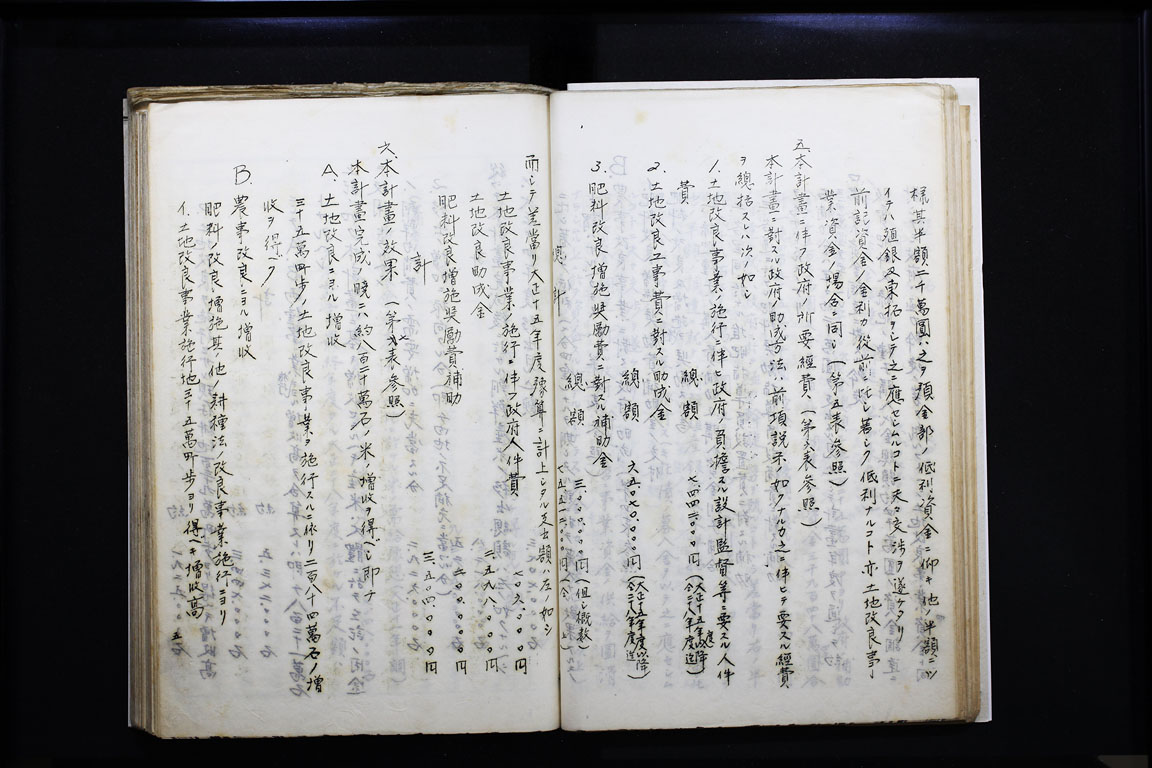 様其半額二千萬圓ハ之ヲ預金部ノ低利資金ニ仰キ他ノ半額ニツ
イテハ殖銀及東拓ヲシテ之ニ應セシムルコトニ夫々交渉ヲ遂ケタリ
前記資金ノ金利カ從前ニ比シ著シク低利ナルコト亦土地改良事
業資金ノ場合ニ同シ(第五表參照)
五、本計畫ニ伴フ政府ノ所要經費(第六表參照)
本計畫ニ對スル政府ノ助成方法ハ前項説示ノ如クナルカ之ニ伴ヒテ要スル經費
ヲ總括スレハ次ノ如シ
1.土地改良事業ノ施行ニ伴ヒ政府ノ負擔スル設計監督等ニ要スル人件
費 總額
2.土地改良工事費ニ對スル助成金
總額 六五〇七〇、〇〇〇円
3.肥料改良增施奬勵費ニ對スル補助金
總額 三〇〇、〇〇〇円(但シ概數)
而シテ差當リ大正十五年度豫算ニ計上シタル支出額ハ左ノ如シ
土地改良事業ノ施行ニ伴フ政府人件費
土地改良助成金
肥料改良增施奬勵費補助
計
六、本計畫ノ效果(第七表參照)
本計畫完成ノ曉ニハ約八百二十萬石ノ米ノ增收ヲ得ベシ即チ
A.土地改良ニヨル增收
三十五萬町歩ノ土地改良事業ヲ施行スルニ依リ二百八十四萬石ノ增
收ヲ得ベク
B.農事改良ニヨル增收
肥料ノ改良增施其ノ他ノ耕種法ノ改良事業施行ニヨリ
イ.土地改良事業施行地三十五萬町歩ヨリ得ベキ增收高